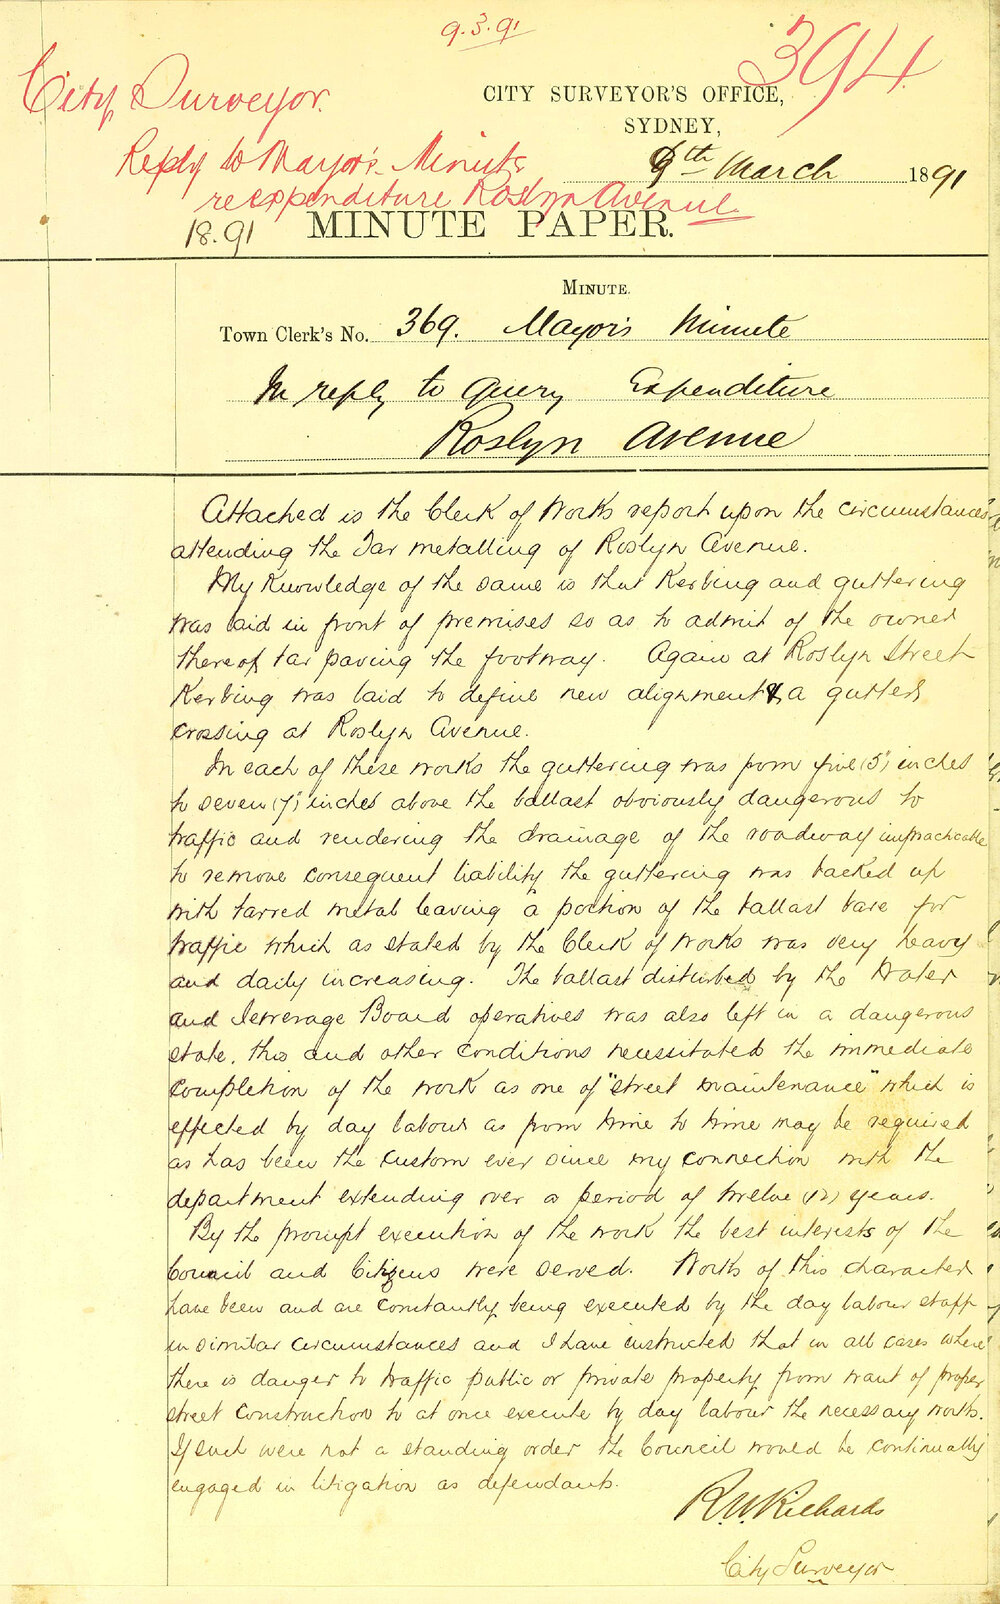 9.3.91
394
City Surveyor.
Reply to Mayor's Minute
re expenditure Roslyn Avenue
CITY SURVEYOR'S OFFICE,
SYDNEY,
9th March 1891
18.91
MINUTE PAPER.
MINUTE.
Town Clerk's No. 369. Mayor's Minute
In reply to query Expenditure
Roslyn Avenue
Attached is the Clerk of Works report upon the circumstances
attending the Tar metalling of Roslyn Avenue.
My knowledge of the same is that Kerbing and guttering
was laid in front of premises so as to admit of the owner
thereof tar paving the footway. Again at Roslyn Street
Kerbing was laid to define new alignment & a gutter
crossing at Roslyn Avenue.
In each of these works the guttering was from five (5") inches
to seven (7") inches above the ballast obviously dangerous to
traffic and rendering the drainage of the roadway impracticable
to remove consequent liability the guttering was backed up
with tarred metal leaving a portion of the ballast bare for
traffic which as stated by the Clerk of Works was very heavy
and daily increasing. The ballast disturbed by the Water
and Sewerage Board operatives was also left in a dangerous
state, this and other conditions necessitated the immediate
completion of the work as one of "street maintenance" which is
effected by day labour as from time to time may be required
as has been the custom ever since my connection with the
department extending over a period of twelve (12) years.
By the prompt execution of the work the best interests of the
Council and Citizens were served. Works of this character
have been and are constantly being executed by the day labour staff
in similar circumstances and I have instructed that in all cases where
there is danger to traffic public or private property from want of proper
street construction to at once execute by day labour the necessary works.
If such were not a standing order the Council would be continually
engaged in litigation as defendants.
R.W. Richards
City Surveyor